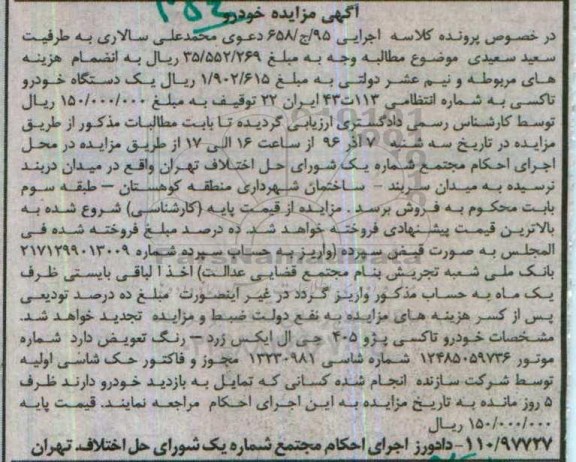 آگهی مزایده خودرو
در خصوص پرونده کلاسه اجرایی ۹۵/ج/۶۵۸ دعوی محمدعلی سالاری به طرفیت
سعید سعیدی موضوع مطالبه وجه به مبلغ ۳۵/۵۵۲/۲۶۹ ریال به انضمام هزینه
های مربوطه و نیم عشر دولتی به مبلغ ۱/۹۰۲/۶۱۵ ریال یک دستگاه خودرو
تاکسی به شماره انتظامی ۱۱۳ت۴۳ ایران ۲۲ توقیف به مبلغ ۱۵۰/۰۰۰/۰۰۰ ریال
توسط کارشناس رسمی دادگستری ارزیابی گردیده تا بابت مطالبات مذکور از طریق
مزایده در تاریخ سه شنبه ۷ آذر ۹۶ از ساعت ۱۶ الی ۱۷ از طریق مزایده در محل
اجرای احکام مجتمع شماره یک شورای حل اختلاف تهران واقع در میدان دربند
نرسیده به میدان سربند - ساختمان شهرداری منطقه کوهستان - طبقه سوم
بابت محکوم به فروش برسد . مزایده از قیمت پایه (کارشناسی) شروع شده به
بالاترین قیمت پیشنهادی فروخته خواهد شد. ده درصد مبلغ فروخته شده فی
المجلس به صورت قبض سپرده (واریز به حساب سپرده شماره ۲۱۷۱۲۹۹۰۱۳۰۰۹
بانک ملی شعبه تجریش بنام مجتمع قضایی عدالت) اخذ الباقی بایستی ظرف
یک ماه به حساب مذکور واریز گردد در غیر اینصورت مبلغ ده درصد تودیعی
پس از کسر هزینه های مزایده به نفع دولت ضبط و مزایده تجدید خواهد شد.
مشخصات خودرو تاکسی پژو ۴۰۵ جی ال ایکس زرد - رنگ تعویض دارد شماره
موتور ۱۲۴۸۵۰۵۹۷۳۶ شماره شاسی ۱۳۲۳۰۹۸۱ مجوز و فاکتور حک شاسی اولیه
توسط شرکت سازنده انجام شده کسانی که تمایل به بازدید خودرو دارند ظرف
۵ روز مانده به تاریخ مزایده به این اجرای احکام مراجعه نمایند. قیمت پایه
۱۵۰/۰۰۰/۰۰۰ ریال
۱۱۰/۹۷۷۲۷- دادورز اجرای احکام مجتمع شماره یک شورای حل اختلاف تهران